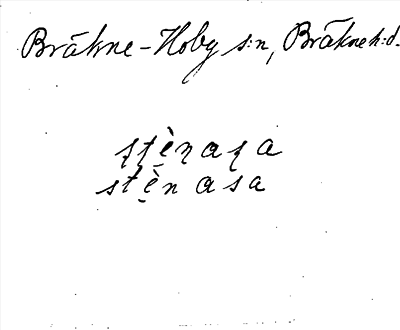 Bräkne-Hoby s:n, Bräkne h:d.
stènasa
stènasa